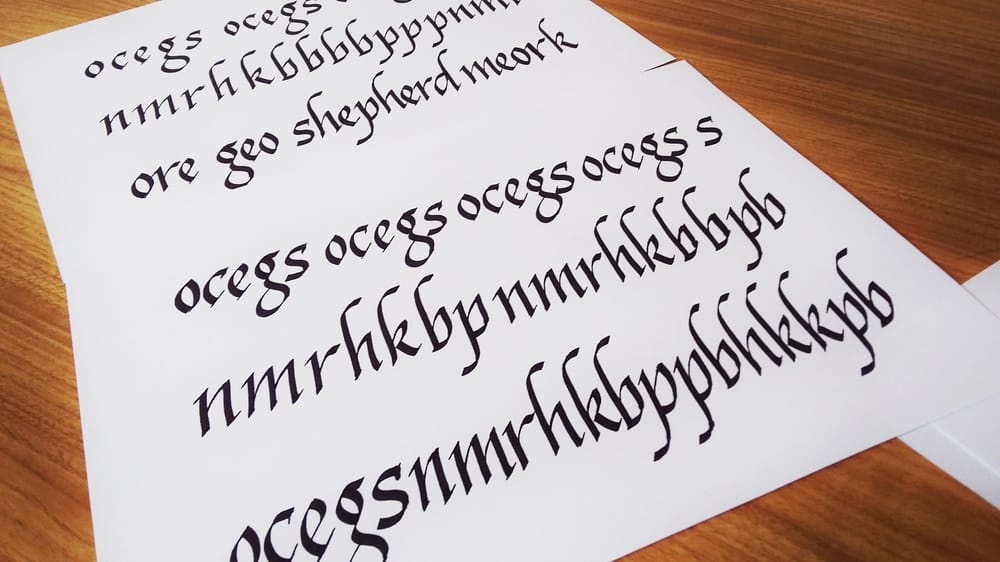 ocegs ocegs
nmrhkbbbbpppnm
ore geo shepherd meork
ocegs ocegs ocegs ocegs s
nmrhkbp nmrhkbbpb
ocegsnmrhkbppbhkkpb